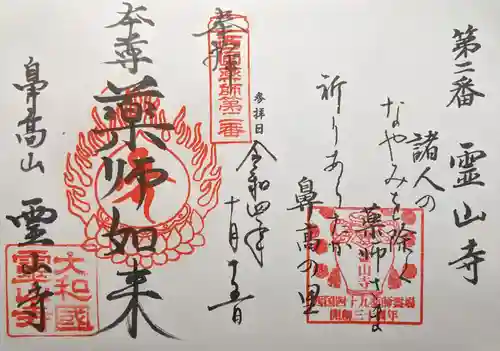 第二番 霊山寺
諸人の
なやみを除く
薬師さま
祈りあらたか
鼻高の里
西国四十九薬師霊場
参拝日 令和四年十月十五日
奉拝
西国薬師第二番
本尊 薬師如来
鼻高山 霊山寺
大和國
霊山寺